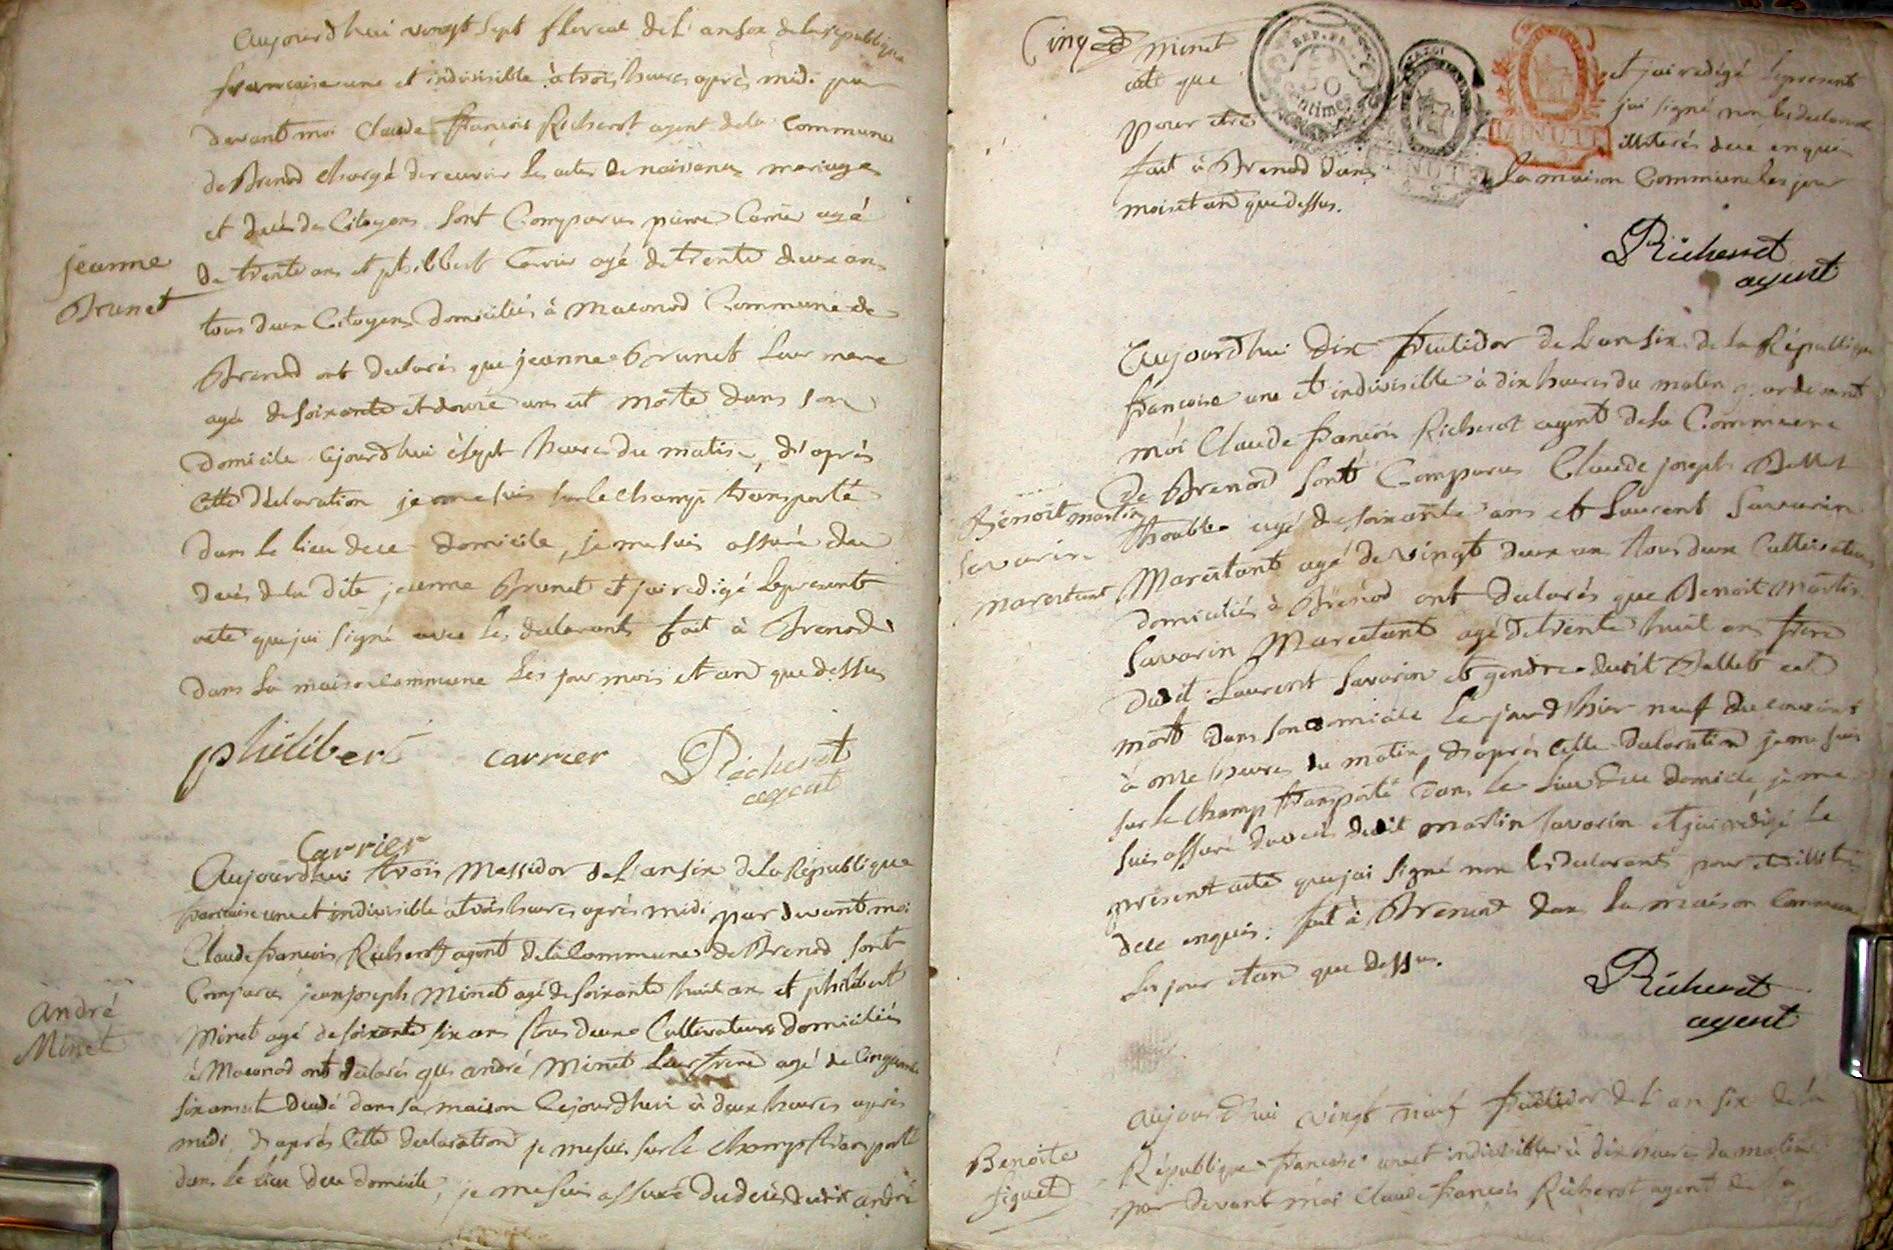 Aujourdhui vingt sept floreal de l'an six de la republique
francaise une et indivisible à trois heures après midi par
devant moi Claude francois Richerot agent de la Commune
de Brenod chargé de recevoir les actes de naissances mariages
et décès des Citoyens sont Comparus pierre Carrier agé
jeanne
Brunet
de trente ans et philibert Carrier agé de trente deux ans
tous deux Citoyens domiciliés à Maconod Commune de
Brenod ont declarés que jeanne Brunet leur mere
agé de soixante et douze ans est morte dans son
domicile cejourdhui à sept heures du matin, d'après
cette declaration je me suis sur le champ transporté
dans le lieu de ce domicile, je me suis assuré du
decès de la dite jeanne Brunet et jai redigé le present
acte que jai signé avec les declarants fait à Brenod
dans la maison commune les jour mois et an que dessus
philibert carrier Richerot
agent
Carrier
Aujourdhui trois Messidor de l'an six de la République
francaise une et indivisible à trois heures après midi par devant moi
Claude francois Richerot agent de la Commune de Brenod sont
Comparus jean joseph Minet agé de soixante huit ans et philibert
André
Minet
Minet agé de soixante six ans tous deux Cultivateurs domiciliés
à Maconod ont declarés que andré Minet leur frere agé de Cinquante
six ans est decedé dans sa maison Cejourdhui à deux heures après
midi, d'après cette declaration je me suis sur le champ transporté
dans le lieu de ce domicile, je me suis assuré du decès dudit andré
Cinq
Minet et jai redigé le present
acte que jai signé non les declarants
pour etre illiterés de ce enquis
fait à Brenod dans la maison Commune les jour
mois et an que dessus.
REP. FRA.
50
centimes
MINUTE
MINUTE
Richerot
agent
Aujourdhui dix fructidor de l'an six de la République
francoise une et indivisible à dix heures du matin par devant
moi Claude francois Richerot agent de la Commune
de Brenod sont Comparus Claude joseph Ballet
Benoit martin
Savarin
Marestant
agé de soixante ans et Laurent Savarin
Marestant agé de vingt deux ans tous deux Cultivateurs
domiciliés à Brenod ont declarés que Benoit Martin
Savarin Marestant agé de trente huit ans frere
dudit Laurent Savarin et gendre dudit Ballet est
mort dans son domicile le jour d'hier neuf du courant
à onze heures du matin, d'après cette declaration je me suis
sur le champ transporté dans le lieu de ce domicile, je me
suis assuré du decès dudit martin Savarin et jai redigé le
present acte que jai signé non les declarants pour etre illiterés
de ce enquis. fait à Brenod dans la maison Commune
les jour et an que dessus.
Richerot
agent
Aujourdhui vingt neuf fructidor de l'an six de la
Benoite
figuet
République francoise une et indivisible à dix heures du matin
par devant moi Claude francois Richerot agent de la